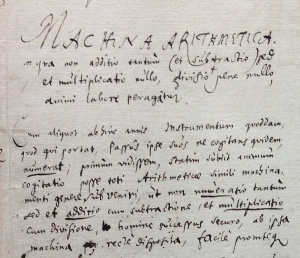 MACHINA ARITHMETICA.
in qua non additio tantum (et subtractio) sed
et multiplicatio nullo, divisio pene nullo,
animi labore peragatur.
Cum aliquot abhinc annis Instrumentum quoddam,
quod qui portat, passus ipse suos ne cogitans quidem,
numerat, primum vidissem, statim subiit animum
cogitatio posse toti Arithmeticae simili machina-
menti genere subveniri ut non numeratio tantum
sed et additio cum subtractione, et multiplicatio
cum divisione, homine successus securo, ab ipsa
machina recte disposita, facile promteque